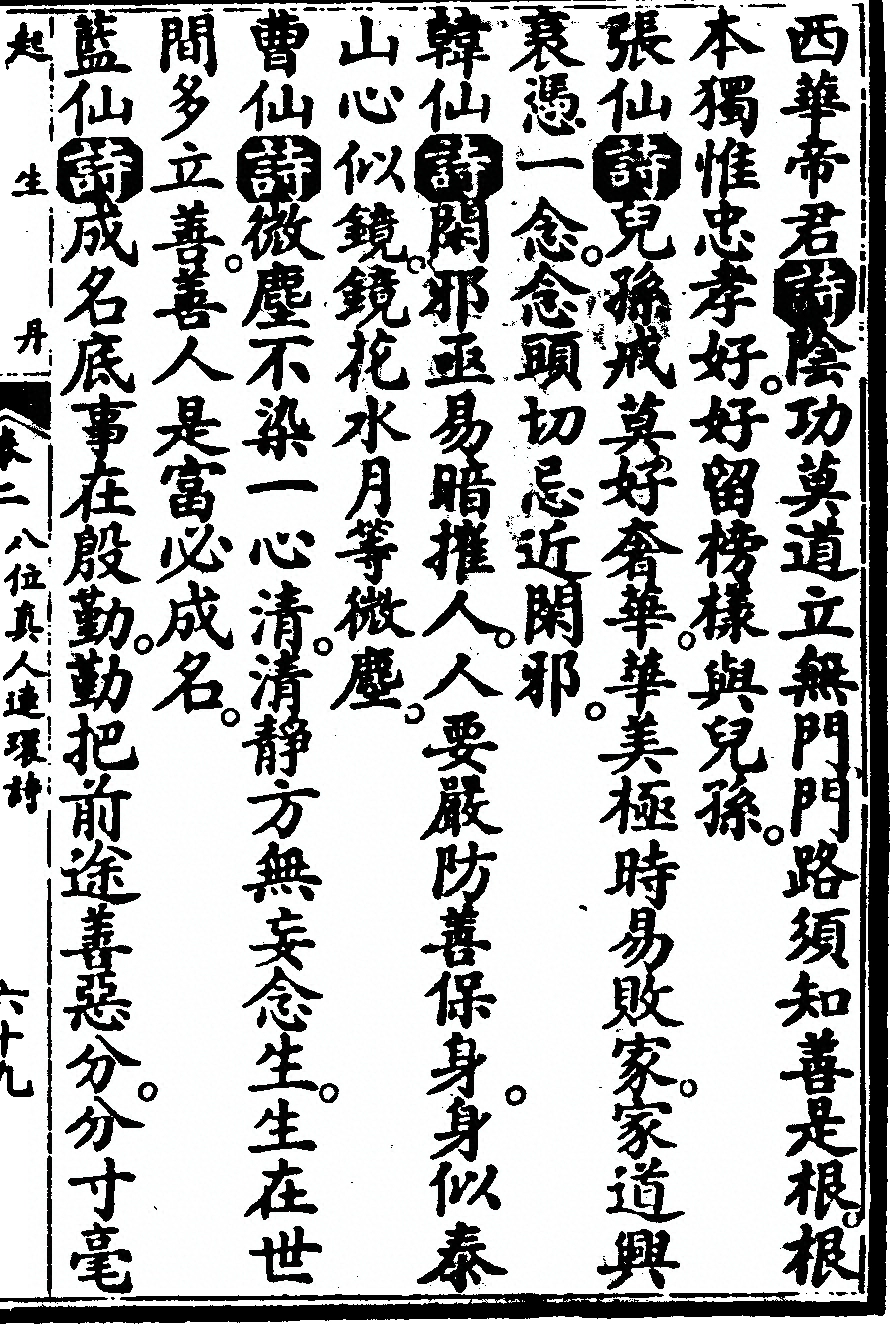 西華帝君詩陰功莫道立無門門路須知善是根根
本獨惟忠孝好好留榜樣與兒孫
張仙詩兒孫戒莫好奢華華美極時易敗家家道興
衰憑一念念頭切忌近閑邪
韓仙詩閑邪亟易暗摧人人要嚴防善保身身似泰
山心似鏡鏡花水月等微塵
曹仙詩微塵不染一心清清靜方無妄念生生在世
間多立善善人是富必成名
藍仙詩成名底事在殷勤勤把前途善惡分分寸毫
起生丹
卷二 八位真人連環詩 六十九